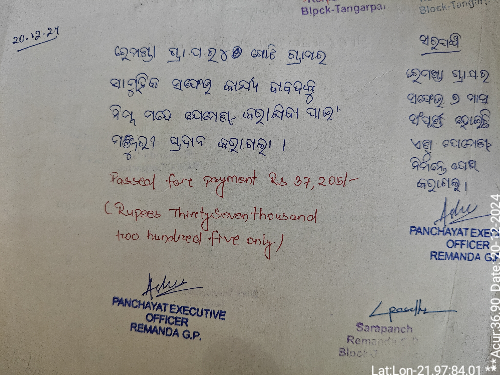 Block-Tangarpali
Block-Tangarpali
20.12.24
ରେମଣ୍ଡା ଗ୍ରା.ପ.ର ଗୋଟି ଗ୍ରାମର
ସାମୁହିକ ସଫେଇ କାର୍ଯ୍ୟ ବାବଦକୁ
ନିମ୍ନ ମତେ ପେମେଣ୍ଟ କରାଯିବା ପାଇଁ
ମଞ୍ଜୁରୀ ପ୍ରଦାନ କରାଗଲା ।
Passed for payment Rs 37,205/-
(Rupees Thirty Seven thousand
two hundred five only)
PANCHAYAT EXECUTIVE
OFFICER
REMANDA G.P.
ରେମଣ୍ଡା ଗ୍ରା.ପ.ର
ସଫେଇ
ସଂପୂର୍ଣ୍ଣ ହୋଇଛି
ଏଣୁ
ନିମନ୍ତେ ପେଶ୍
କରାଗଲା ।
PANCHAYAT EXEC
OFFICER
REMANDA G.P.
Sarapanch
Remanda
Block
Lat:Lon-21.97:84.01
**Acur:36.90 Date:20-12-2024